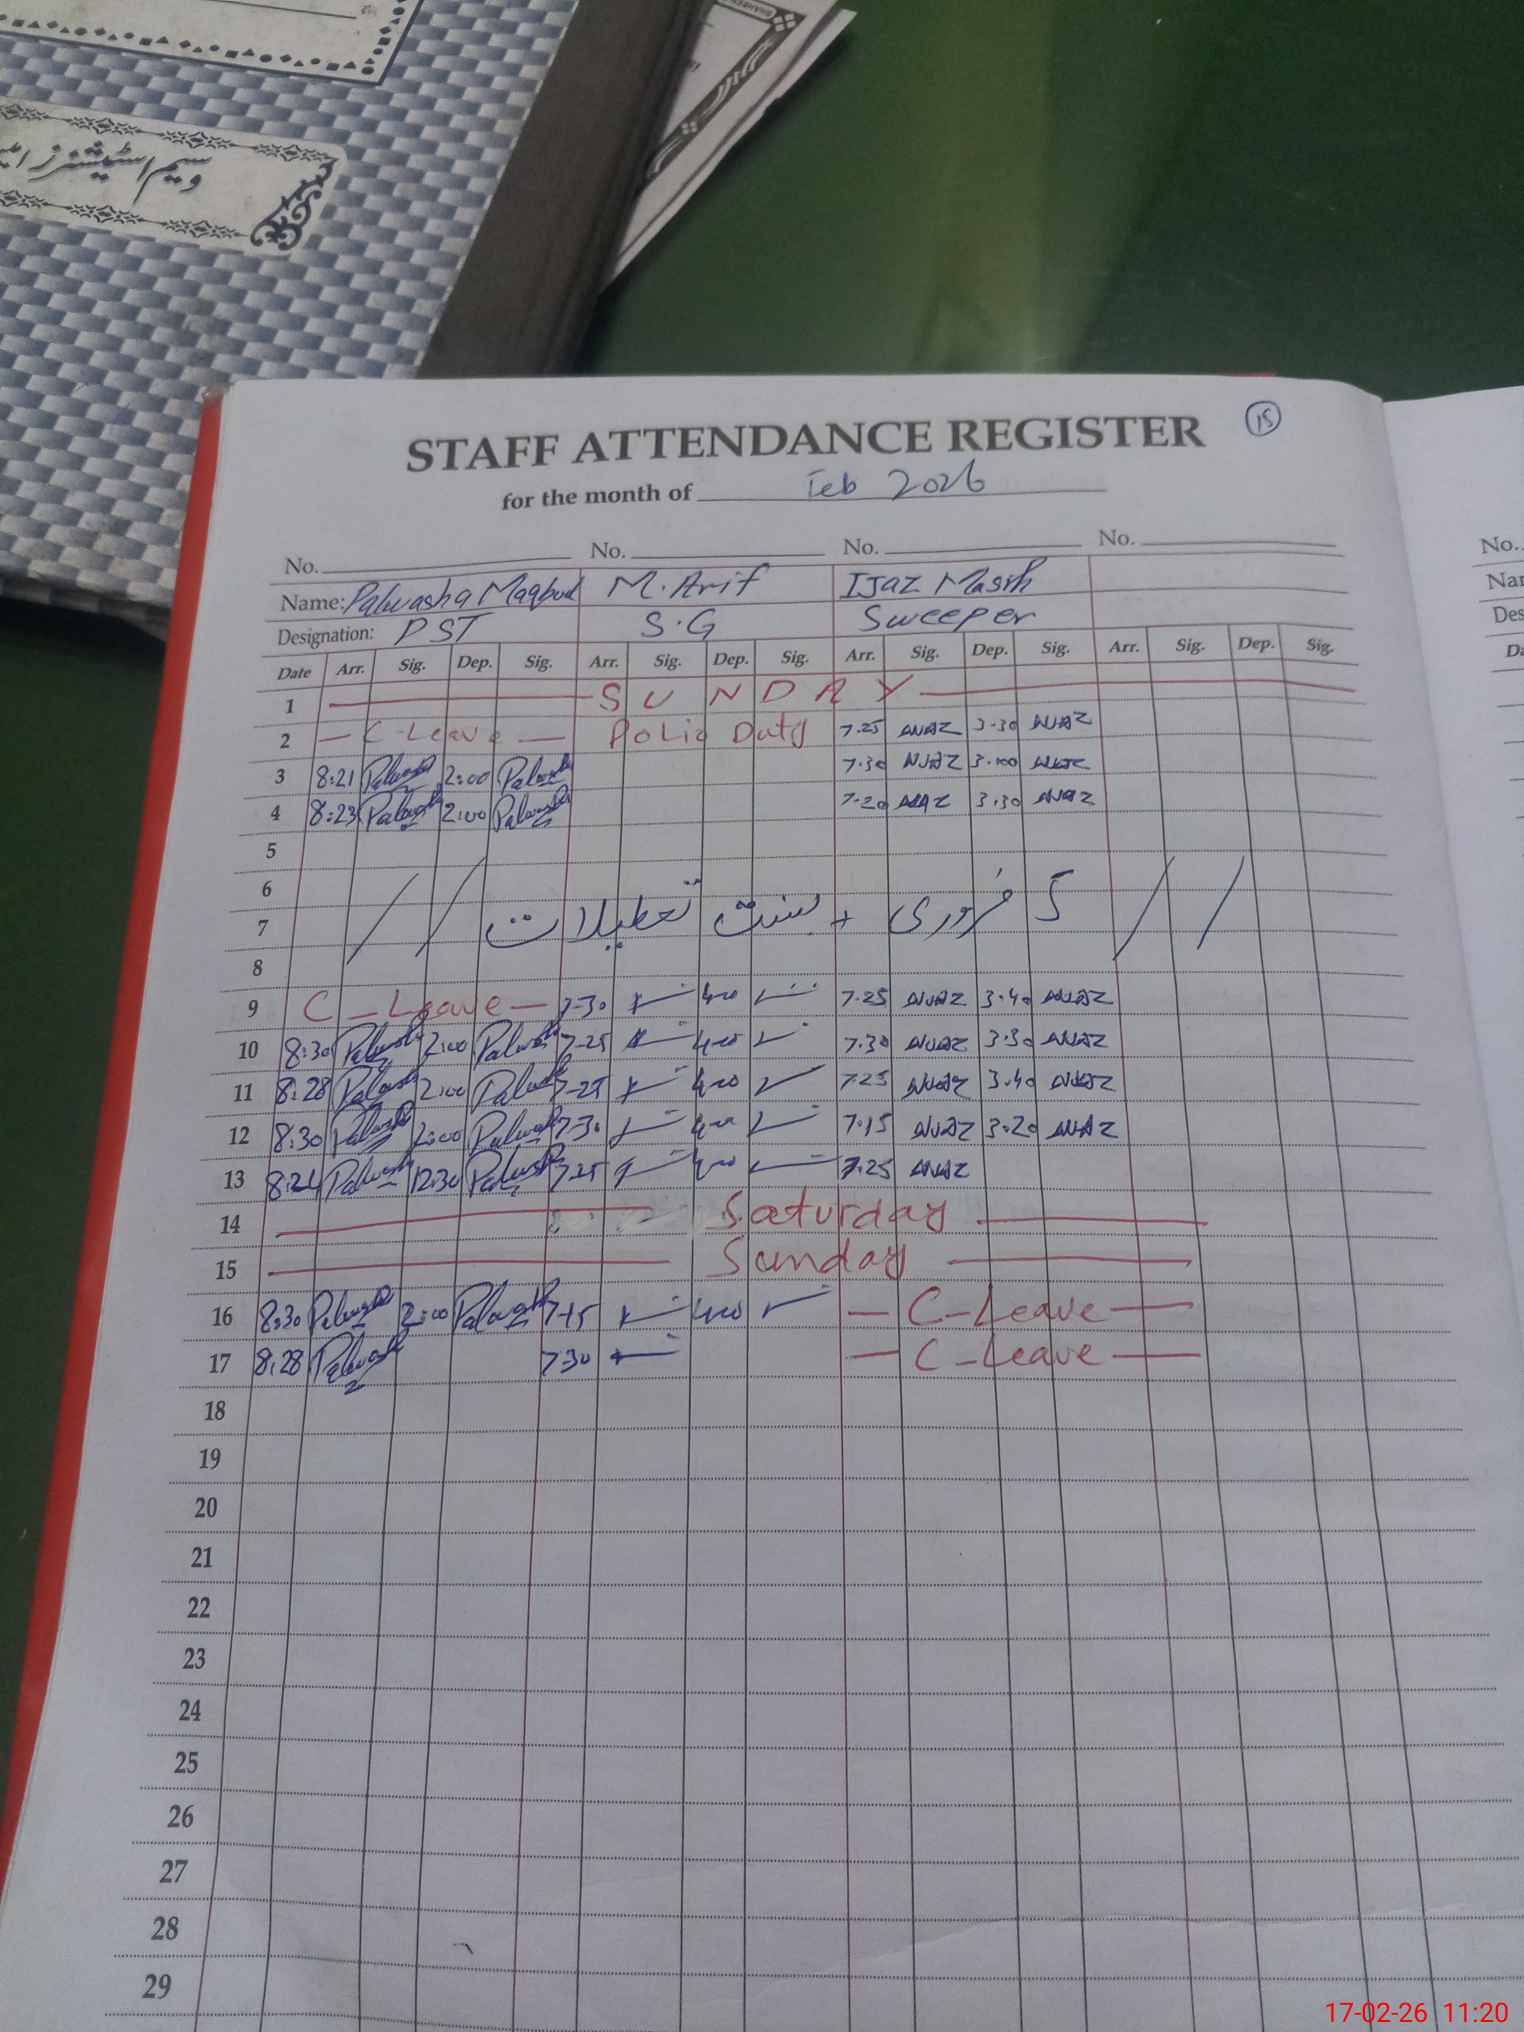 وسیم اسٹیشنرز
STAFF ATTENDANCE REGISTER 15
for the month of Feb 2026
No. No. No. No. No.
Name: Palwasha Maqbool M. Arif Ijaz Masih
Designation: PST S.G Sweeper
Date Arr. Sig. Dep. Sig. Arr. Sig. Dep. Sig. Arr. Sig. Dep. Sig. Arr. Sig. Dep. Sig.
1 SUNDAY
2 C-Leave Polio Duty 7.25 3.30
3 8:21 Palwasha 2:00 Palwasha 7.30 3.00
4 8:23 Palwasha 2:00 Palwasha 7.20 3.30
5
6
7 5 فروری + بسنت تعطیلات
8
9 C-Leave 7-30 4:00 7.25 3.40
10 8:30 Palwasha 2:00 Palwasha 7-25 4:00 7.30 3.30
11 8:28 Palwasha 2:00 Palwasha 7-25 4:00 7.25 3.40
12 8:30 Palwasha 2:00 Palwasha 7-30 4:00 7.15 3.20
13 8:24 Palwasha 12:30 Palwasha 7-25 4:00 7.25
14 Saturday
15 Sunday
16 8:30 Palwasha 2:00 Palwasha 7-15 4:00 C-Leave
17 8:28 Palwasha 7-30 C-Leave
18
19
20
21
22
23
24
25
26
27
28
29
17-02-26 11:20